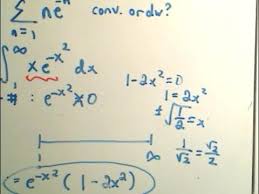 ∞
Σ ne^-n² conv. or div?
n=1
∫^∞ xe^-x² dx
1-2x²=0
#: e^-x² ≠0
1=2x²
±√1/2 =x
∞
1/√2 = √2/2
= e^-x² (1-2x²)